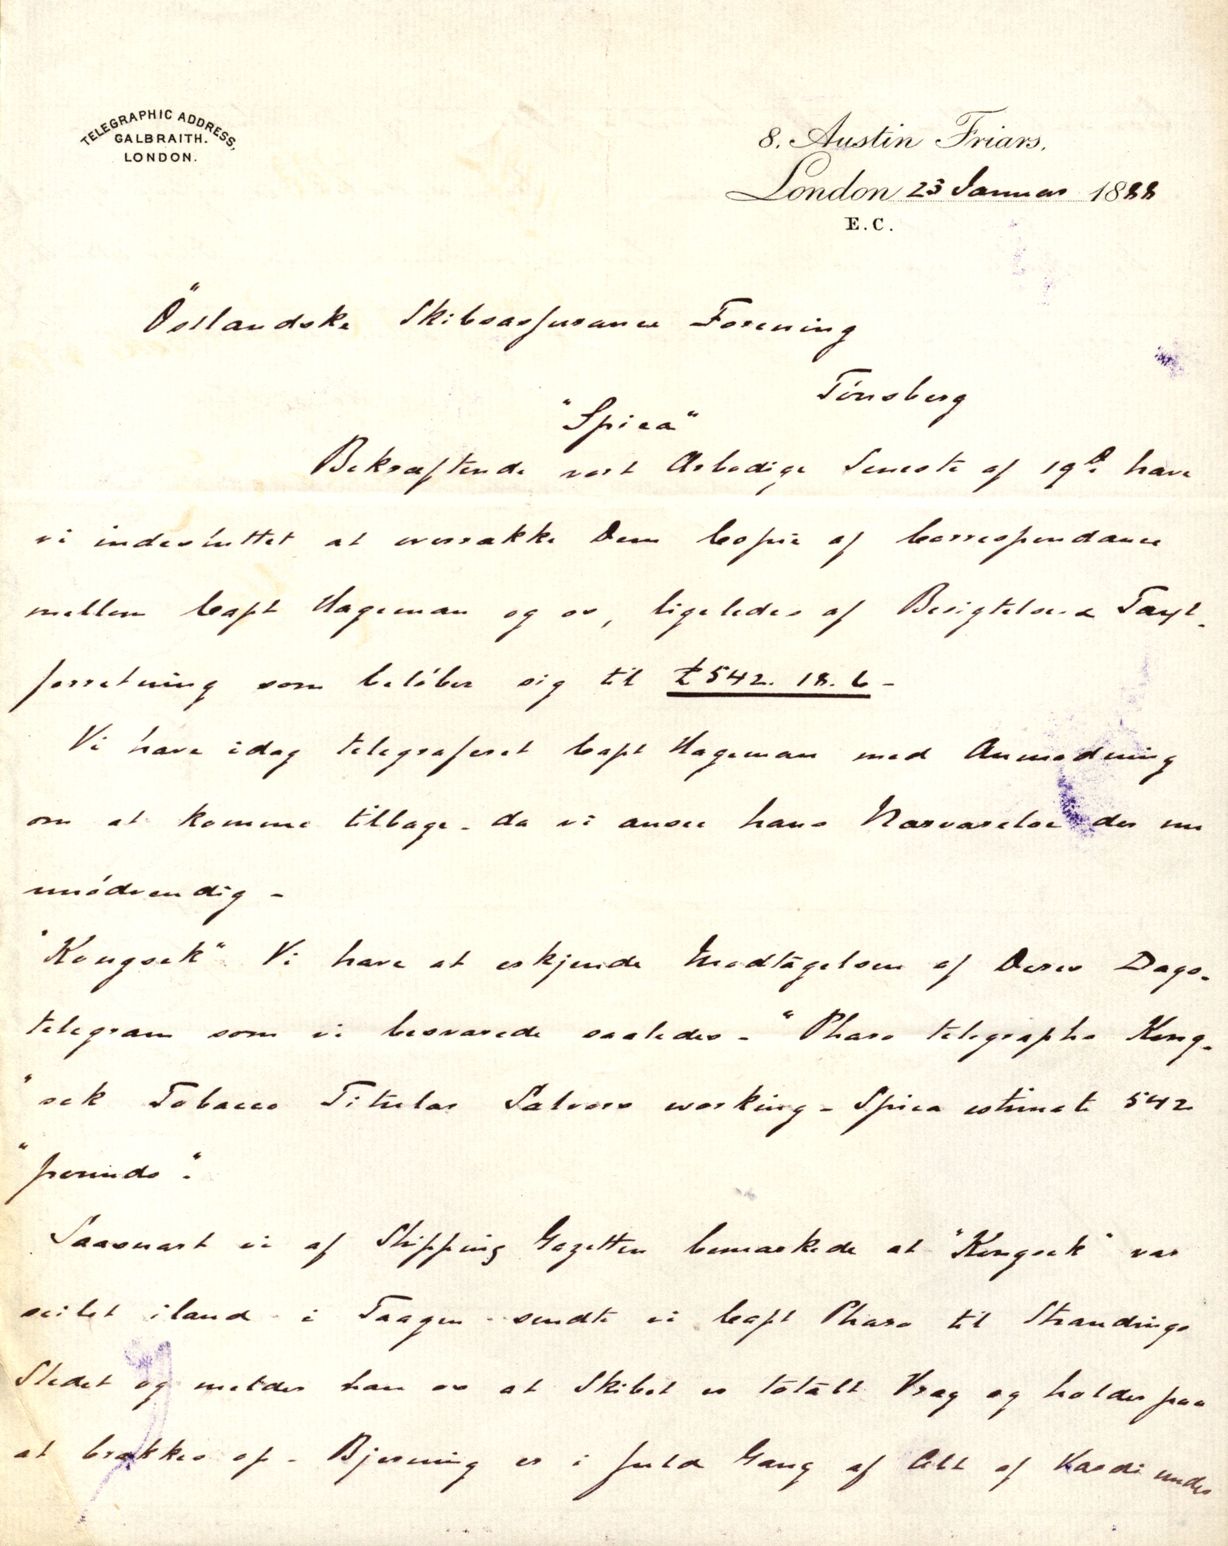 TELEGRAPHIC ADDRESS,
GALBRAITH.
LONDON.
8. Austin Friars.
London 23 Januar 1888
E.C.
Östlandske Skibsassurance Forening
Tönsberg
"Spica"
Bekræftende vort Ærbødige Seneste af 19d. have
vi indesluttet at overrække Dem Copie af Correspondance
mellem Capt Hageman og os, ligeledes af Besigtelse & Taxt-
forretning som belöber sig til £542. 18. 6 -
Vi have idag telegraferet Capt Hageman med Anmodning
om at komme tilbage - da vi ansee hans Nærværelse der nu
unödvendig -
"Kongsek" Vi have at erkjende Modtagelsen af Deres Dags-
telegram som vi besvarede saaledes - "Pharo telegraphs Kong-
"sek Tobacco Titular Salvors working - Spica estimate 542
"pounds".
Saasnart vi af Shipping Gazetten bemærkede at "Kongsek" var
seilet iland i Taagen sendte vi Capt Pharo til Strandings
Stedet og melder han os at Skibet er totalt Vrag og holder paa
at brækkes op - Bjerning er i fuld Gang af Alt af Værdi under